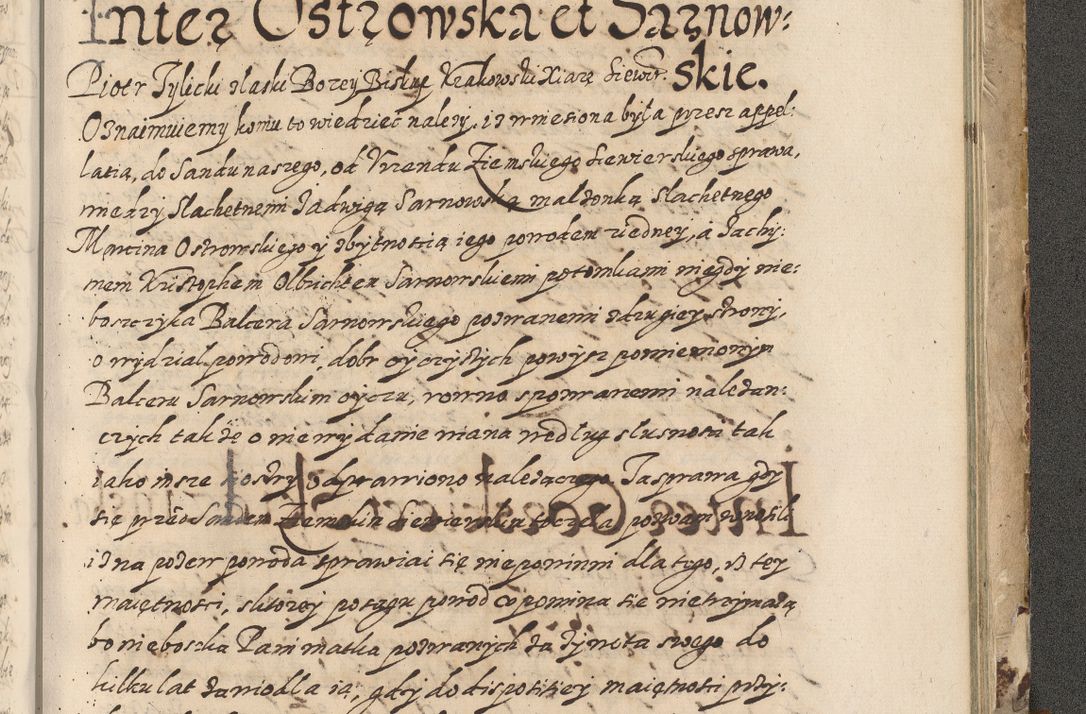 Inter Ostrowska et Sarnow:
skie.
Piotr Tylicki z łaski Bozey Biskup Krakowski Xiąże Siewier:
Oznaimuiemy komu to wiedzieć nalezy, iz wniesiona była przez appel:
latią, do Sandu naszego, od Vrzendu Ziemskiego Siewierskiego sprawa,
miedzy Slachetnemi Jadwigą Sarnowską małzonką Slachetnego
Marcina Ostrowskiego y zbytnoscią iego powodem z iedney, a Jachy:
mem Krisztophem Olbrichtem Sarnowskiemi potomkami niegdy nie:
boszczyka Balcera Sarnowskiego pozwanemi z drugiey strony,
o wydział powodowi, dobr oyczystych powysz pomienionym
Balceru Sarnowskim oyczu, rowno s pozwanemi nalezan:
czych takze o nie wydanie wiana według słusnosci tak
iako insze siostry odprawiono nalezącego. Ta sprawa gdy
się przed Sandem Ziemskim Siewierskim toczyła pozwani wnosili
iz na pozew powoda sprawiac się nie powinni dla tego, iz tey
maiętnosci, s ktorey posagu powod upomina sie nie trzymaią
bo nieboszka Pani matka pozwanych za zywota swego do
kilku lat zawiodła ią, gdy do dispositiey maiętnosci przy: